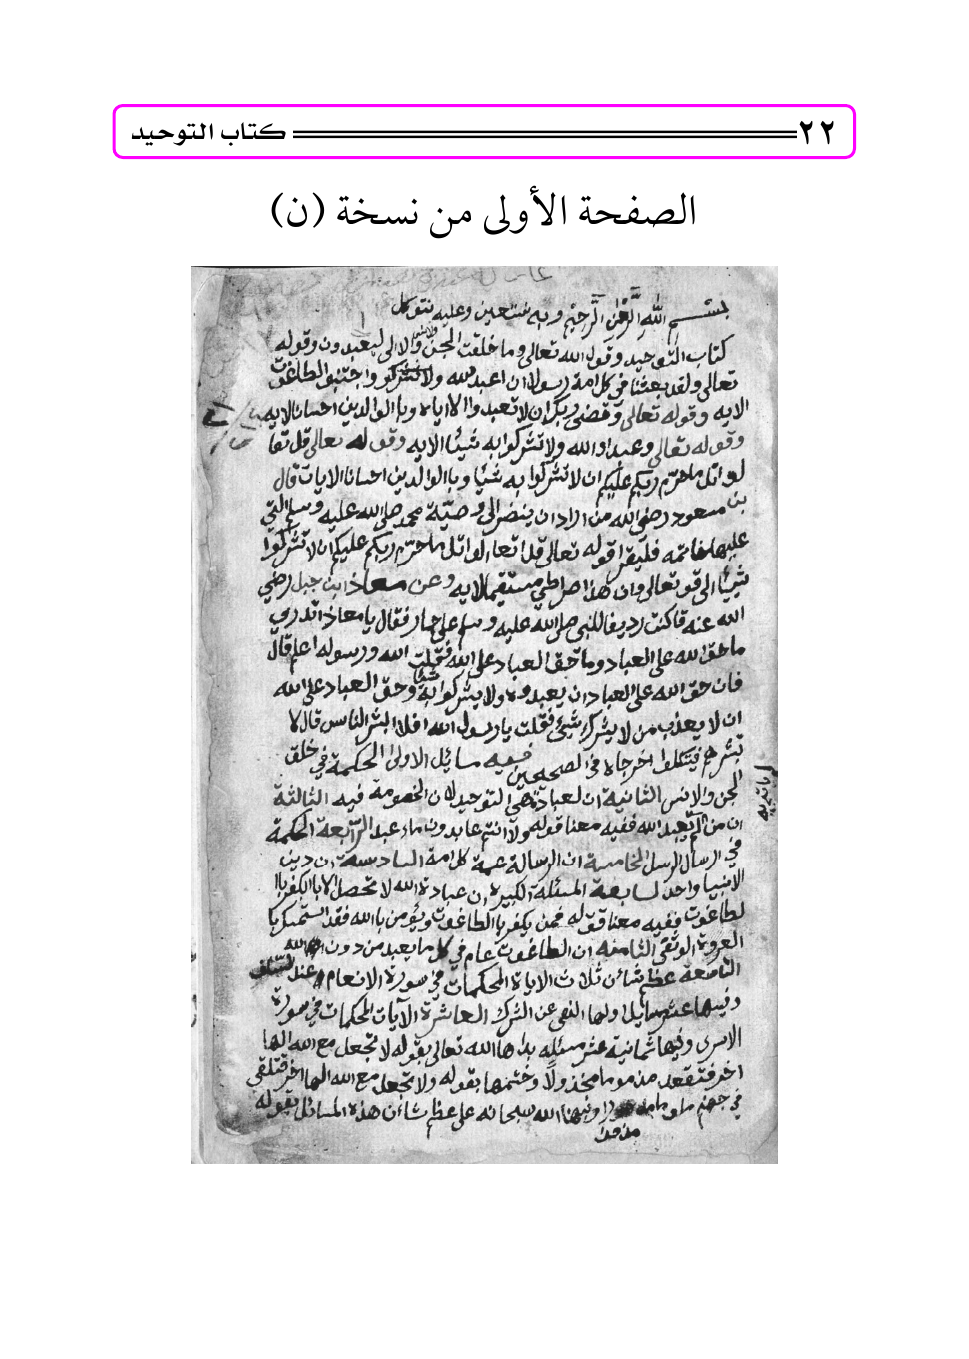 ٢٢ كتاب التوحيد
الصفحة الأولى من نسخة (ن)
بسم الله الرحمن الرحيم وبه نستعين وعليه نتوكل
كتاب التوحيد وقول الله تعالى وما خلقت الجن والانس الا ليعبدون وقوله
تعالى ولقد بعثنا في كل امة رسولا ان اعبدوالله واجتنبوا الطاغوت
الايه وقوله تعالى وقضى ربك ان لا تعبدوا الا اياه وباالوالدين احسانا الايه
وقوله تعالى وعبدوالله ولا تشركوا به شيئا الايه وقوله تعالى قل تعا
لو اتل ما حرم ربكم عليكم ان لا تشركوا به شيئا وباالوالدين احسانا الايات قال
بن مسعود رضي الله من اراد ان ينضر الى وصية محمد صلى الله عليه وسلم التي
عليها خاتمه فليقرا قوله تعالى قل تعالوا اتل ما حرم ربكم عليكم ان لا تشركوا
شيئا الى قوتعالى وان هذا صراطي مستقيما لايه وعن معاذ ابن جبل رضي
الله عنه قا كنت رديفا للنبي صلى الله عليه وسلم على حمار فقال يا معاذ اتدري
ما حق الله على العباد وما حق العباد على الله فقلت الله ورسوله اعلم قال
فان حق الله على العباد ان يعبدوه ولا يشركوا به شيئا وحق العباد على الله
ان لا يعذب من لا يشرك شيئ فقلت يا رسول الله افلا ابشر الناس قال لا
تبشرهم فيتكلوا اخرجاه في الصحيحين ففيه مسايل الاولى الحكمة في خلق
الجن والانس الثانية ان لعبادة هي التوحيد لان الخصومة فيه الثالثة
ان من لم يعبد الله ففيه معنا قوله ولا انتم عابدون ما اعبد الرابعة الحكمة
في ارسال الرسل الخامسة ان الرسالة عمة كل امة السادسة ان دين
الانبيا واحد لسابعة المسئلة الكبيرة ان عبادة الله لا تحصل الا باالكفر باا
لطاغوت ففيه معنا قوله فمن يكفر باالطاغوت ويؤمن باالله فقد استمسك باا
العروة الوثقى الثامنه ان الطاغوت عام في كل ما يعبد من دون الله
التاسعة عظم شائن ثلاث الاياة المحكمات في سورة الانعام عند السلف
وفيها عشر مسايل اولها النهي عن الشرك العاشرة الآيات المحكمات في سورة
الاسرى وفيها ثمانية عشر مسئله بداها الله تعالى بقوله لا تجعل مع الله الها
اخر فتقعد مذموما مخذولا وختمها بقوله ولا تجعل مع الله الها اخر فتلقى
في جهنم ملوما مدحورا ونبهنا الله سبحانه على عظم شاأن هذه المسائل بقوله